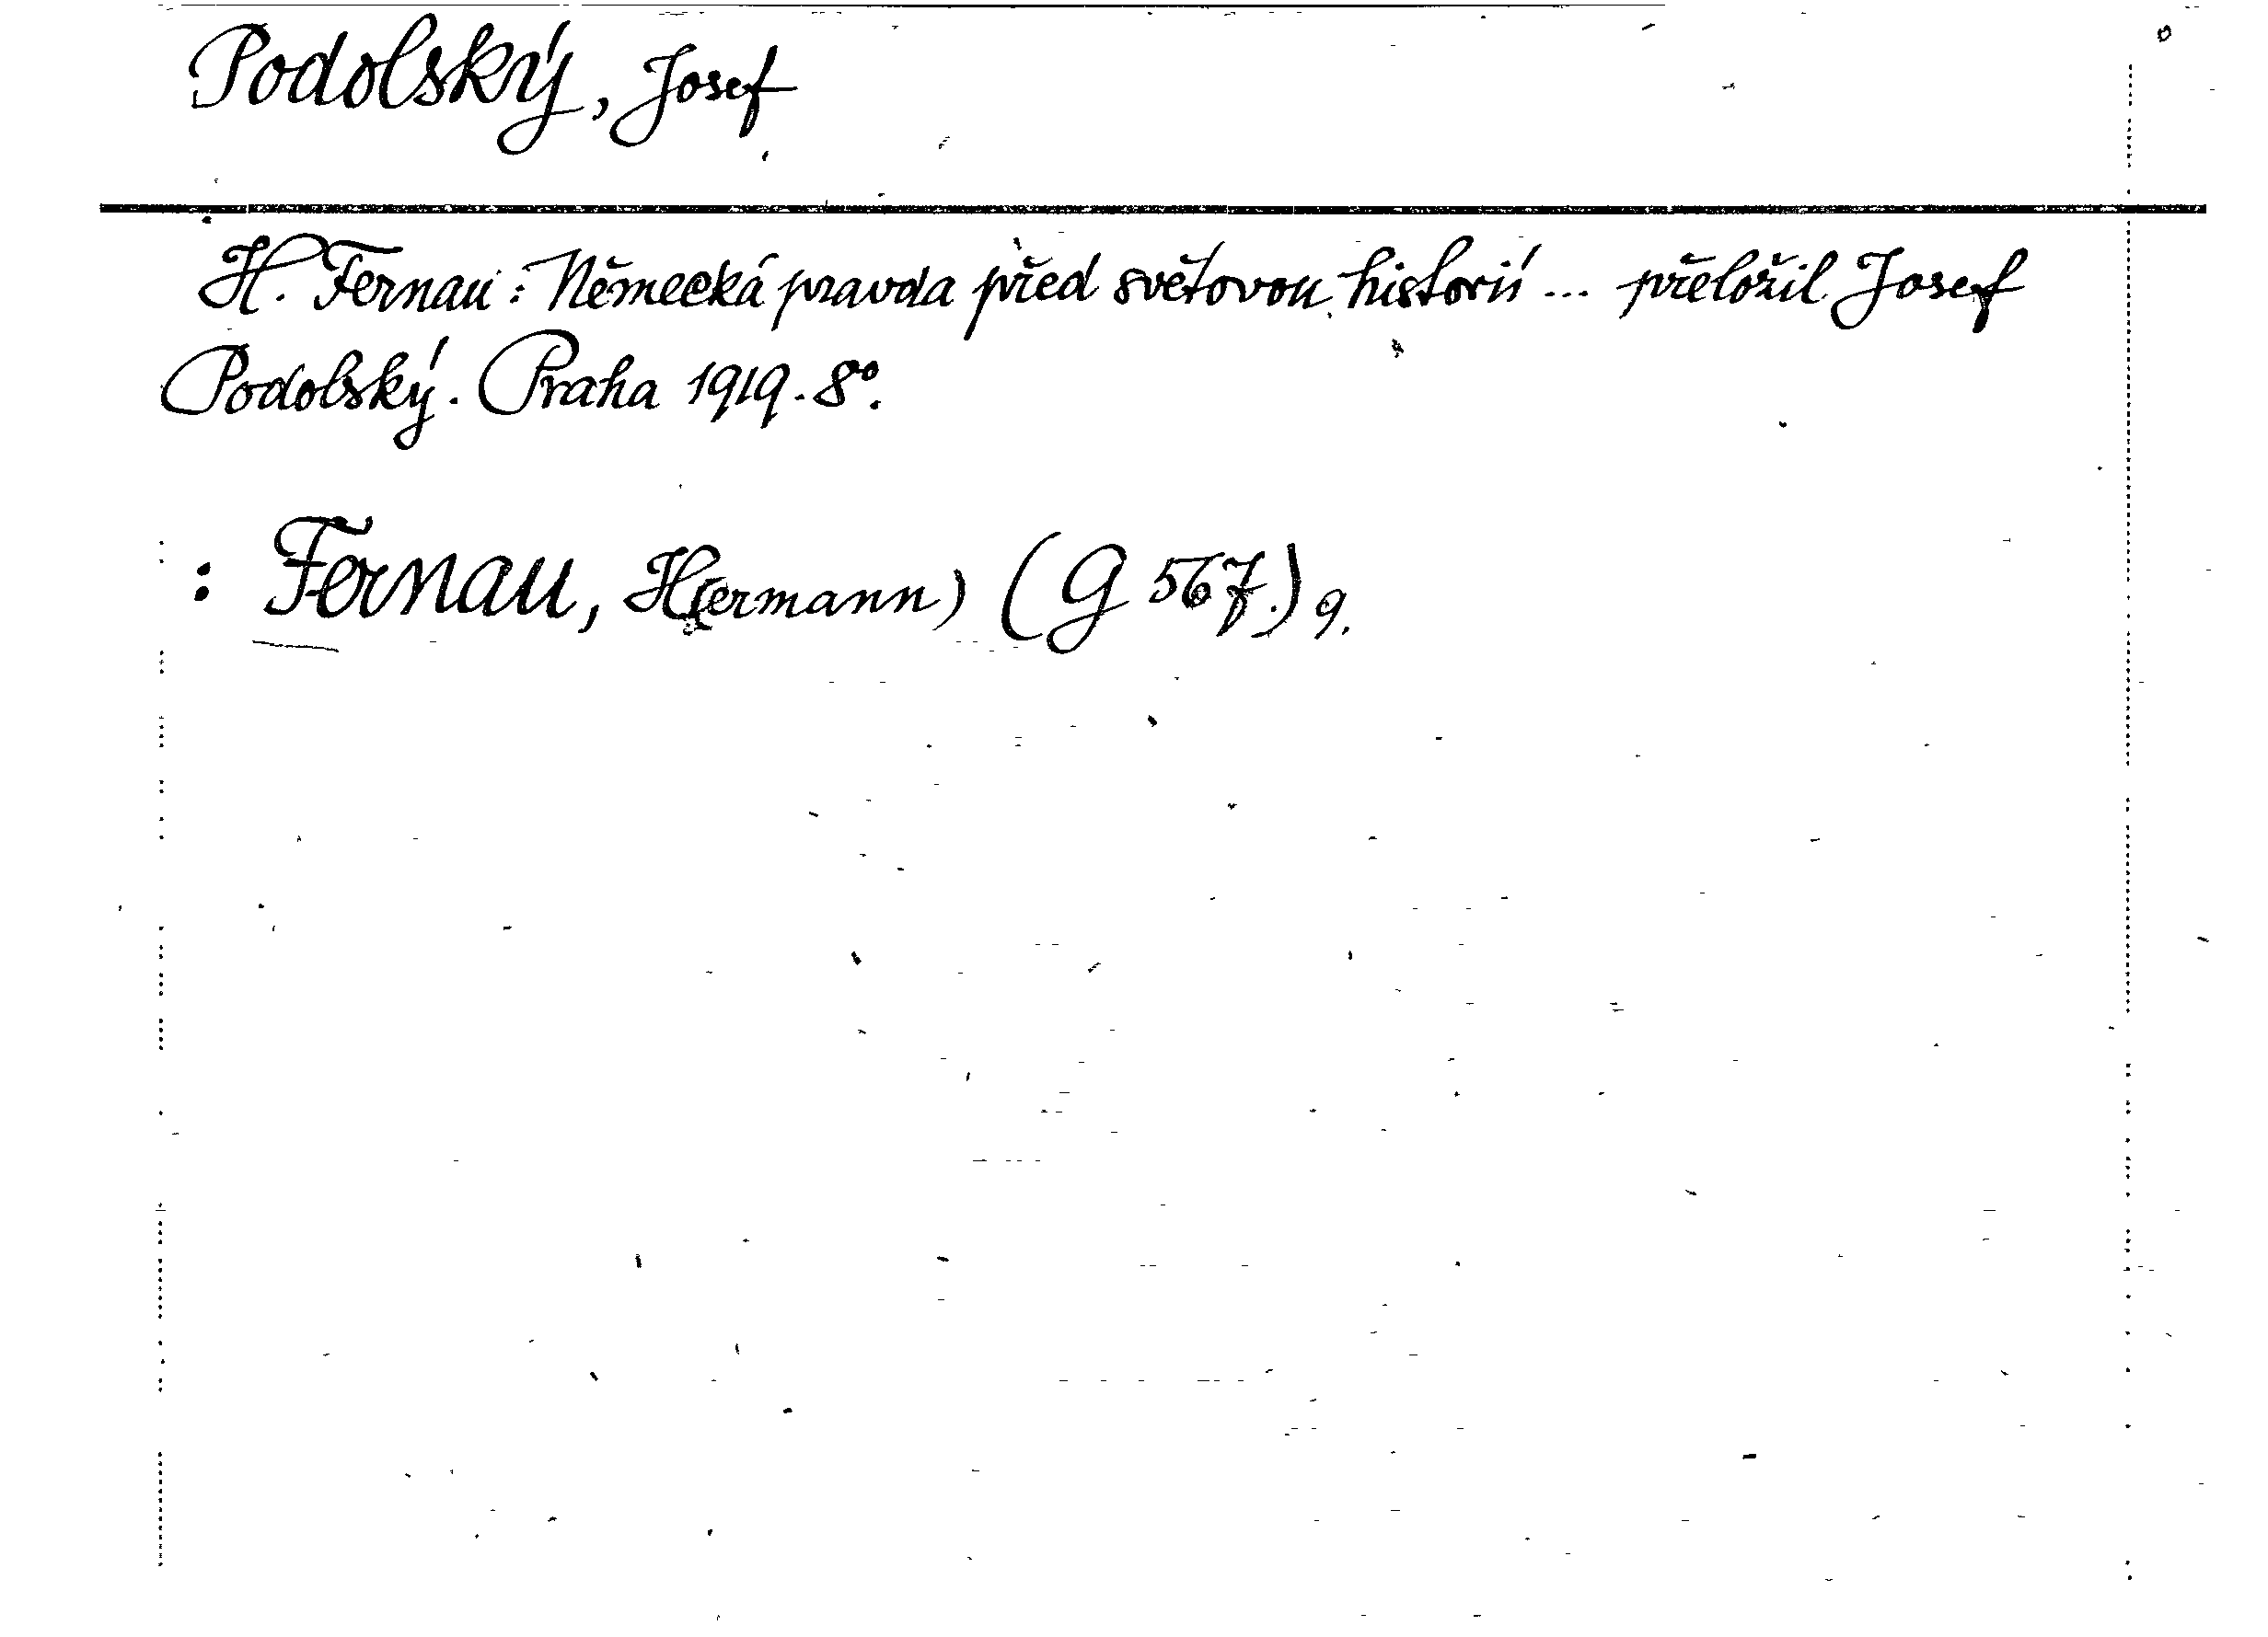 Podolský, Josef
H. Fernau: Německá pravda před světovou historií ... přeložil Josef
Podolský. Praha 1919. 8º.
: Fernau, H(ermann) (G 567.) 9.